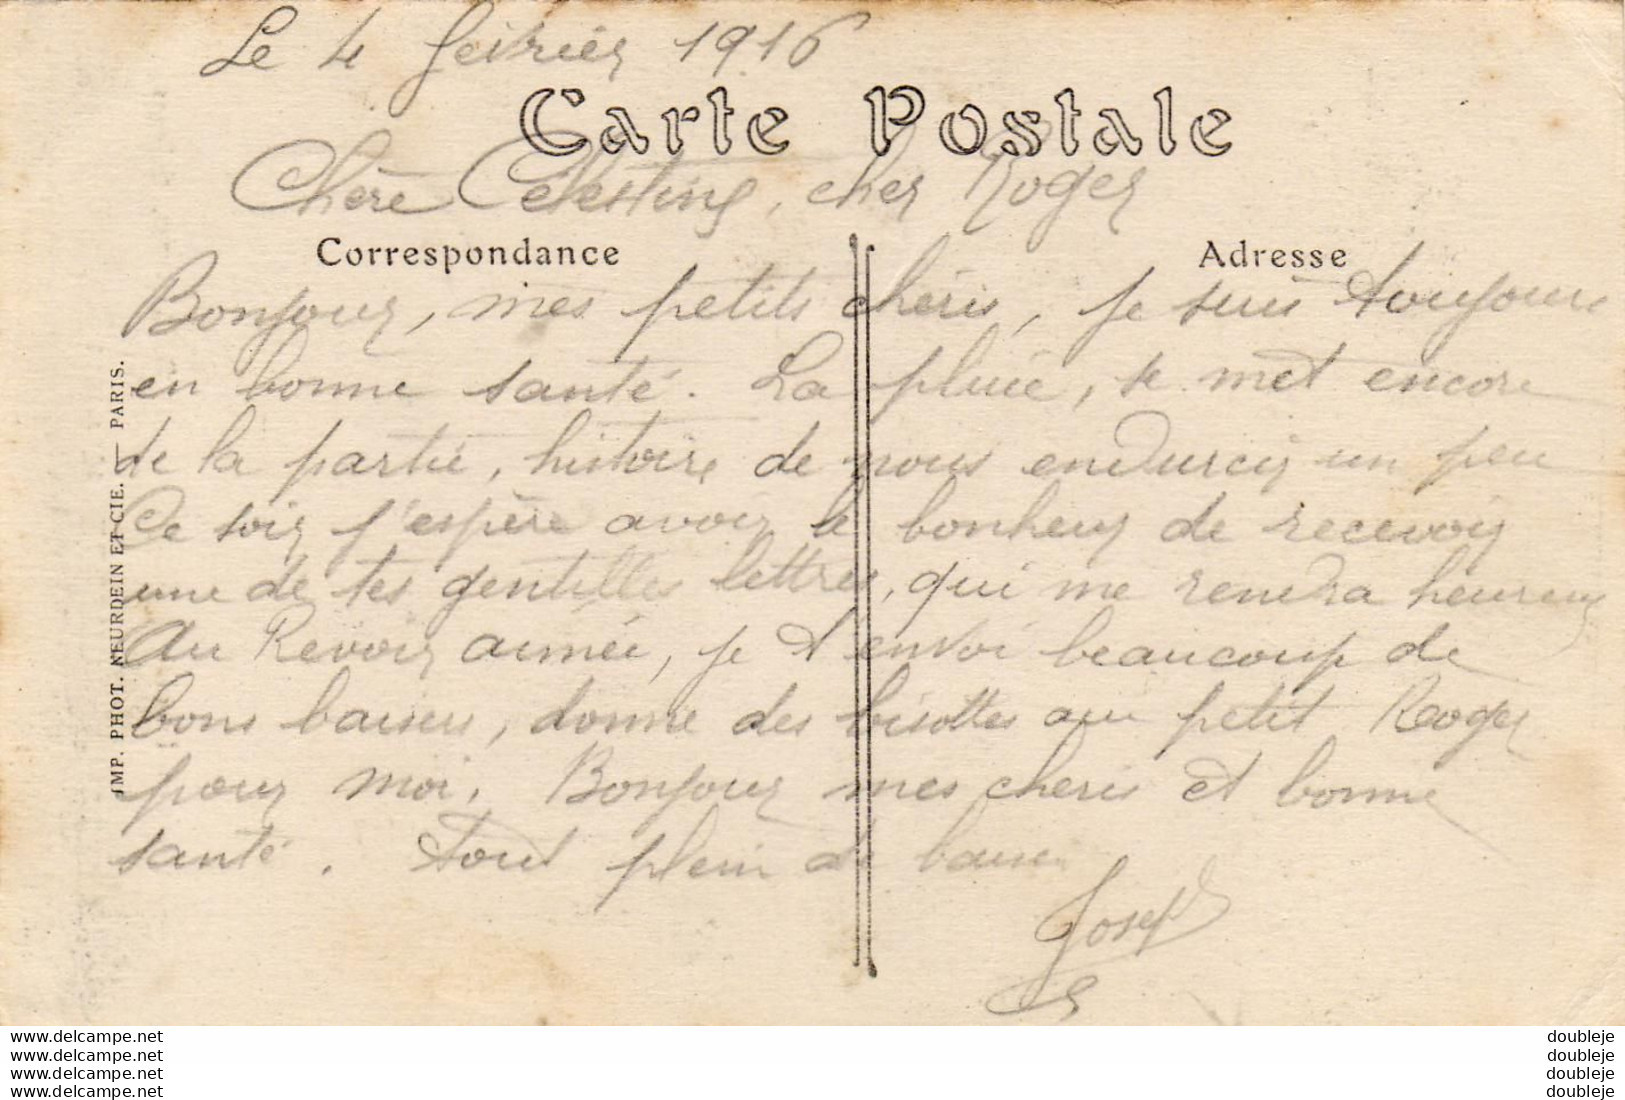 Le 4 février 1916
Carte Postale
Chère Célestine, cher Roger
Correspondance
Adresse
Bonjour, mes petits chéris, je suis toujours
en bonne santé. La pluie, se met encore
de la partie, histoire de nous endurcir un peu
Ce soir j'espère avoir le bonheur de recevoir
une de tes gentilles lettres, qui me rendra heureux
Au Revoir aimée, je t'envoi beaucoup de
bons baisers, donne des bisottes au petit Roger
pour moi. Bonjour mes cheris et bonne
santé. Tout plein de baisers
Joseph
IMP. PHOT. NEURDEIN ET CIE. — PARIS.
www.delcampe.net
www.delcampe.net
www.delcampe.net
www.delcampe.net
doubleje
doubleje
doubleje
doubleje